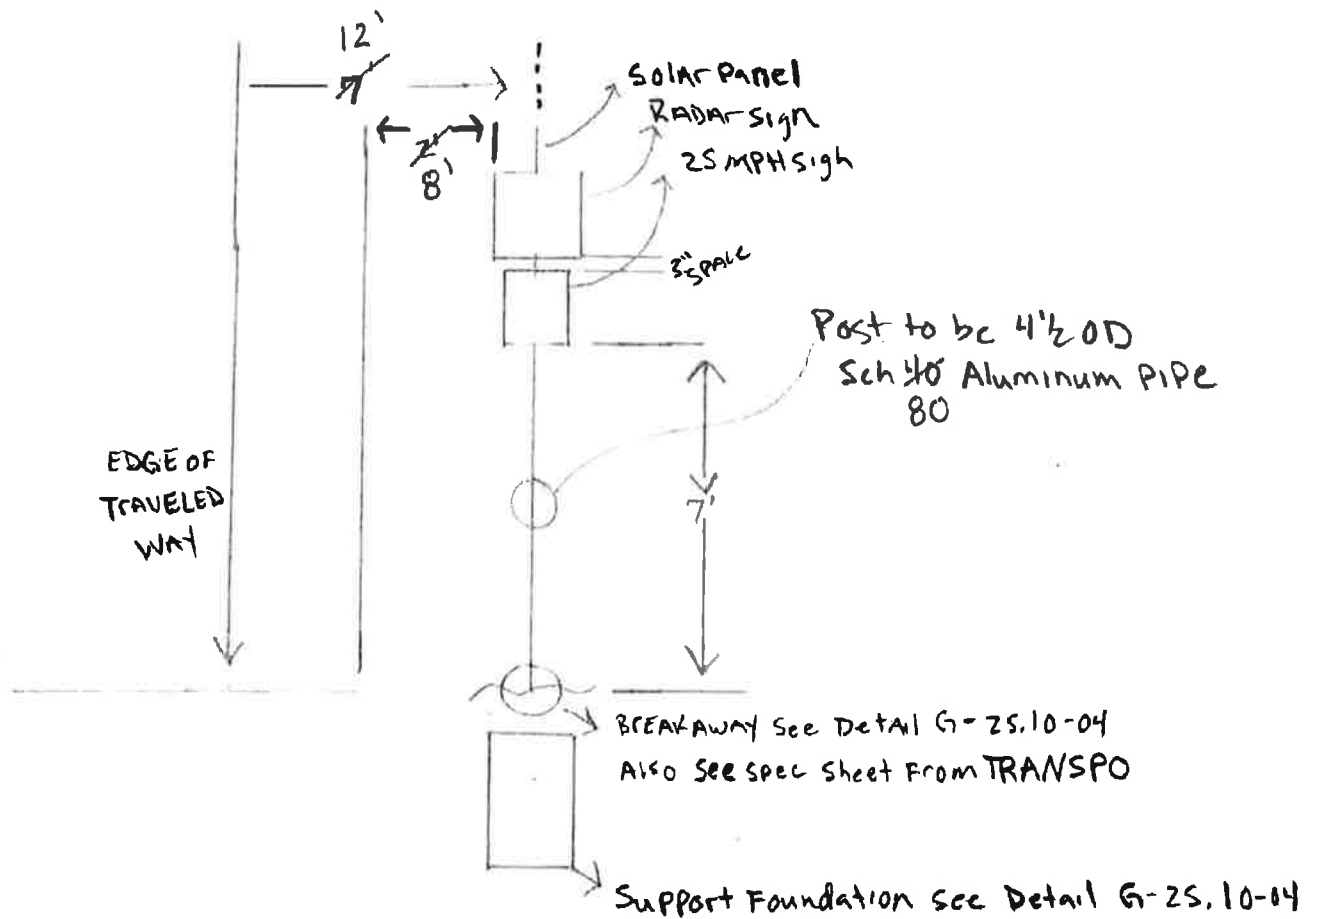 12'
7'
2'
8'
Solar Panel
RADAr Sign
25 MPH Sign
3" SPACE
Post to be 4 1/2 OD
Sch 40 Aluminum PiPe
80
EDGE OF
TrAVELED
WAY
7'
BrEAKAWAY See Detail G-25.10-04
Also See spec Sheet From TRANSPO
Support Foundation See Detail G-25.10-04